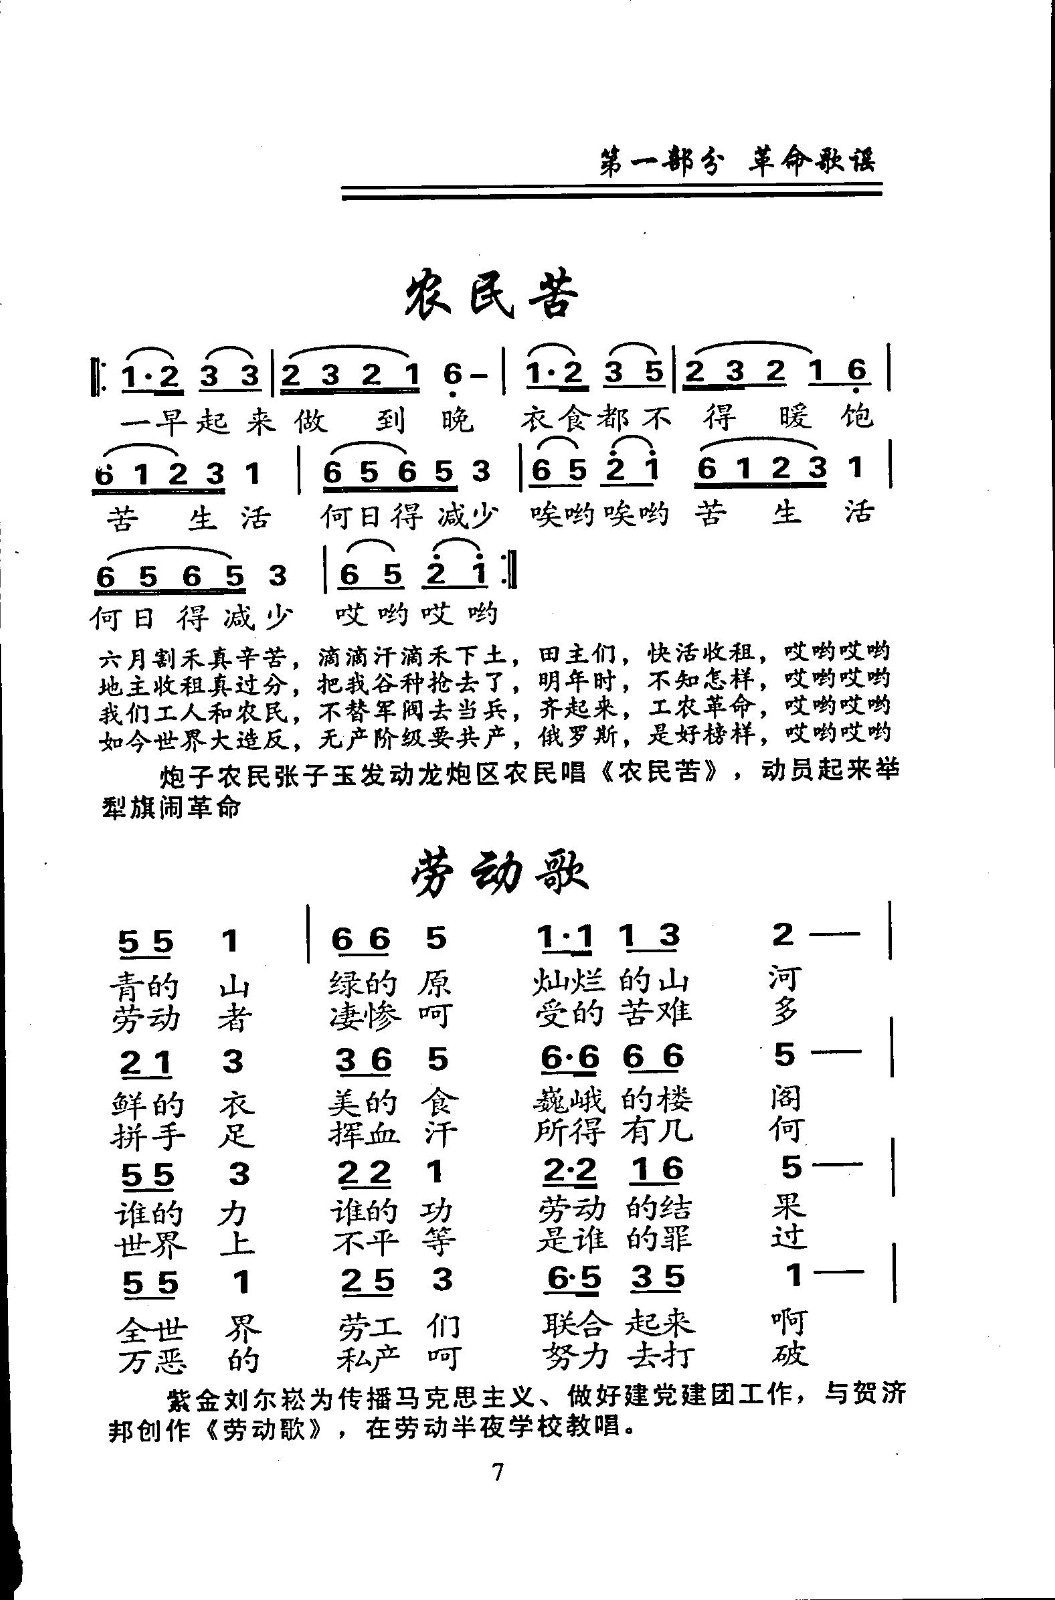 第一部分 革命歌谣
农民苦
1·2 3 3 2 3 2 1 6 - 1·2 3 5 2 3 2 1 6
一早起来做到晚 衣食都不得暖饱
6 1 2 3 1 6 5 6 5 3 6 5 2 1 6 1 2 3 1
苦生活 何日得减少 唉哟唉哟 苦生活
6 5 6 5 3 6 5 2 1
何日得减少 哎哟哎哟
六月割禾真辛苦，滴滴汗滴禾下土，田主们，快活收租，哎哟哎哟
地主收租真过分，把我谷种抢去了，明年时，不知怎样，哎哟哎哟
我们工人和农民，不替军阀去当兵，齐起来，工农革命，哎哟哎哟
如今世界大造反，无产阶级要共产，俄罗斯，是好榜样，哎哟哎哟
炮子农民张子玉发动龙炮区农民唱《农民苦》，动员起来举
犁旗闹革命
劳动歌
5 5 1 6 6 5 1·1 1 3 2 —
青的山 绿的原 灿烂的山河
劳动者 凄惨呵 受的苦难多
2 1 3 3 6 5 6·6 6 6 5 —
鲜的衣 美的食 巍峨的楼阁
拼手足 挥血汗 所得有几何
5 5 3 2 2 1 2·2 1 6 5 —
谁的力 谁的功 劳动的结果
世界上 不平等 是谁的罪过
5 5 1 2 5 3 6·5 3 5 1 —
全世界 劳工们 联合起来啊
万恶的 私产呵 努力去打破
紫金刘尔崧为传播马克思主义、做好建党建团工作，与贺济
邦创作《劳动歌》，在劳动半夜学校教唱。
7